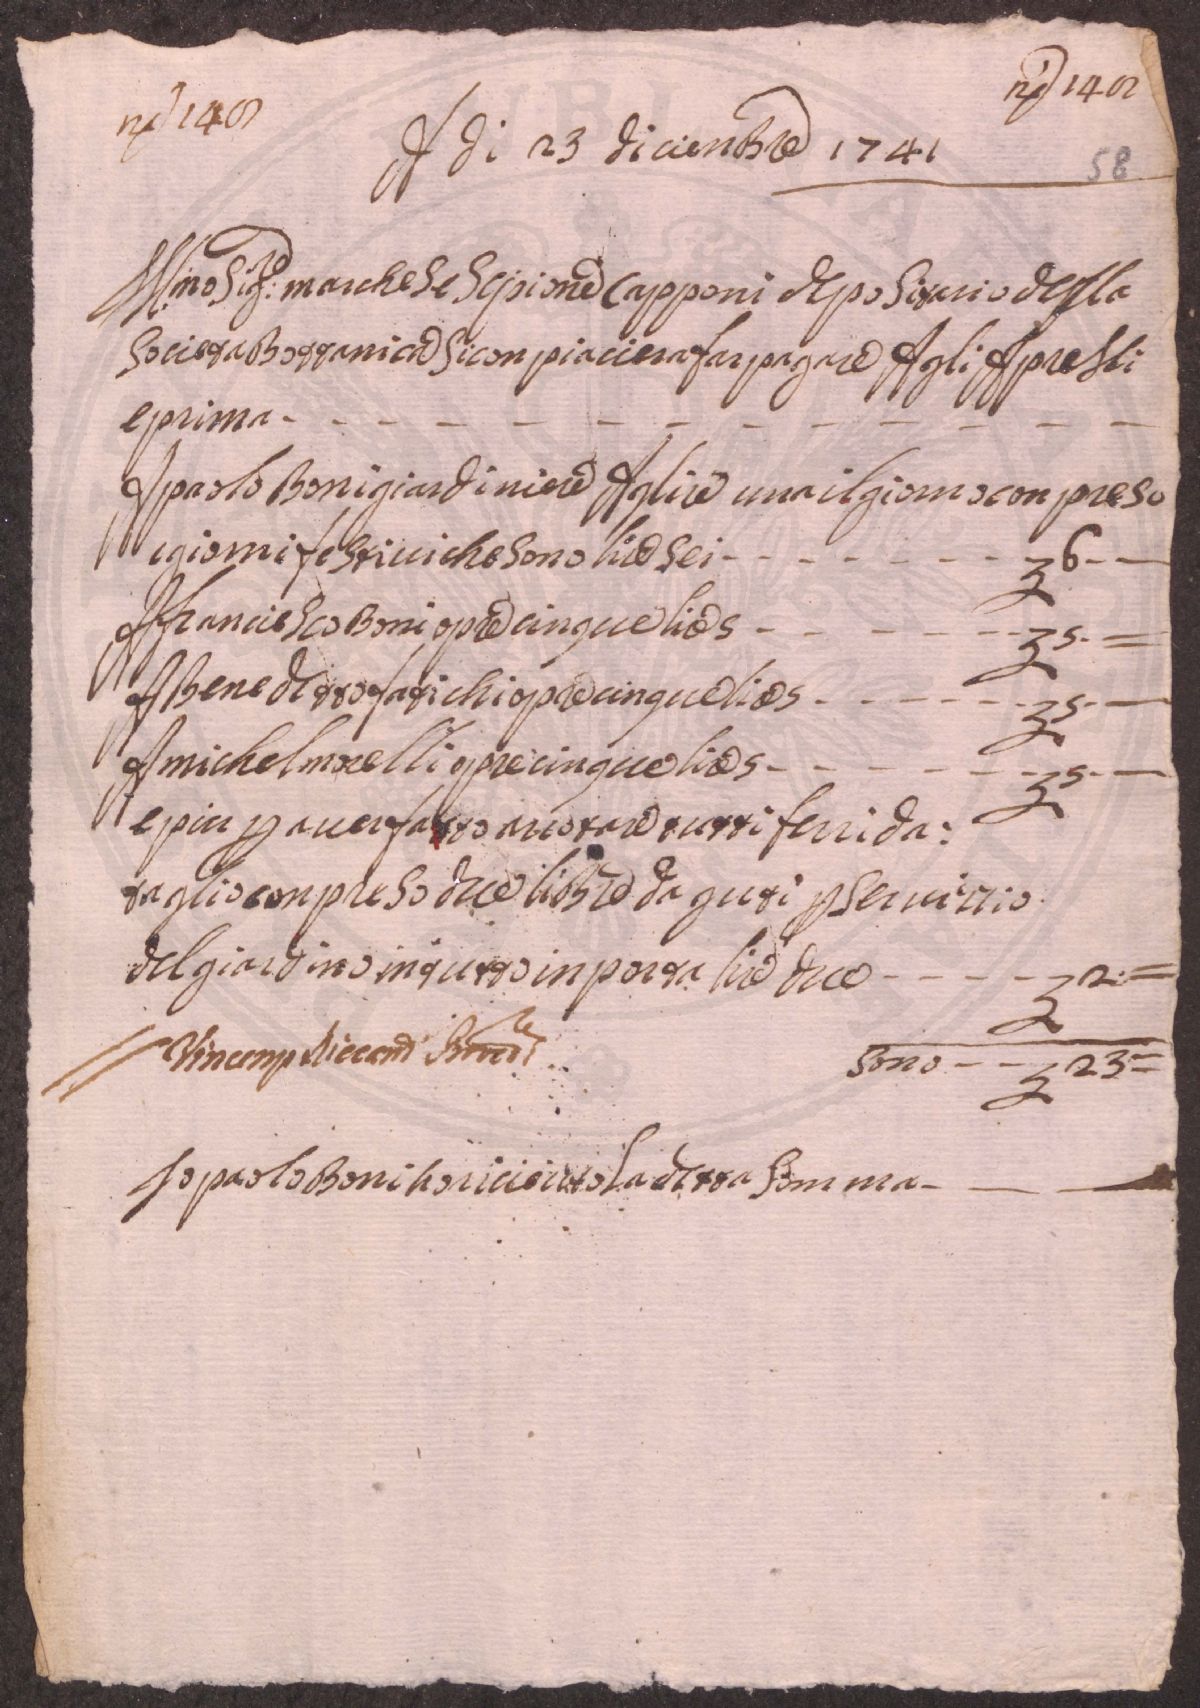 n° 140
n° 140
A di 23 diciembre 1741
58
Ill:mo Sig:re marchese Scipione Capponi depositario della
Societa Bottanica Si conpiaciera far pagare Agli Apresti
e prima
A paolo Boni giardiniere A lire una il giorno conpreso
i giorni festivi che sono lire sei 6
A franciesco Boni opre cinque lire 5 5
A Benedetto fatichi opre cinque lire 5 5
A michel morelli opre cinque lire 5 5
e piu p aver fatto arotare tutti ferri da:
taglio conpreso due libre daguti p servizio
del giardino in tutto inporta lire due 2
sono 23
Io paolo Boni ho riceuto La detta Somma